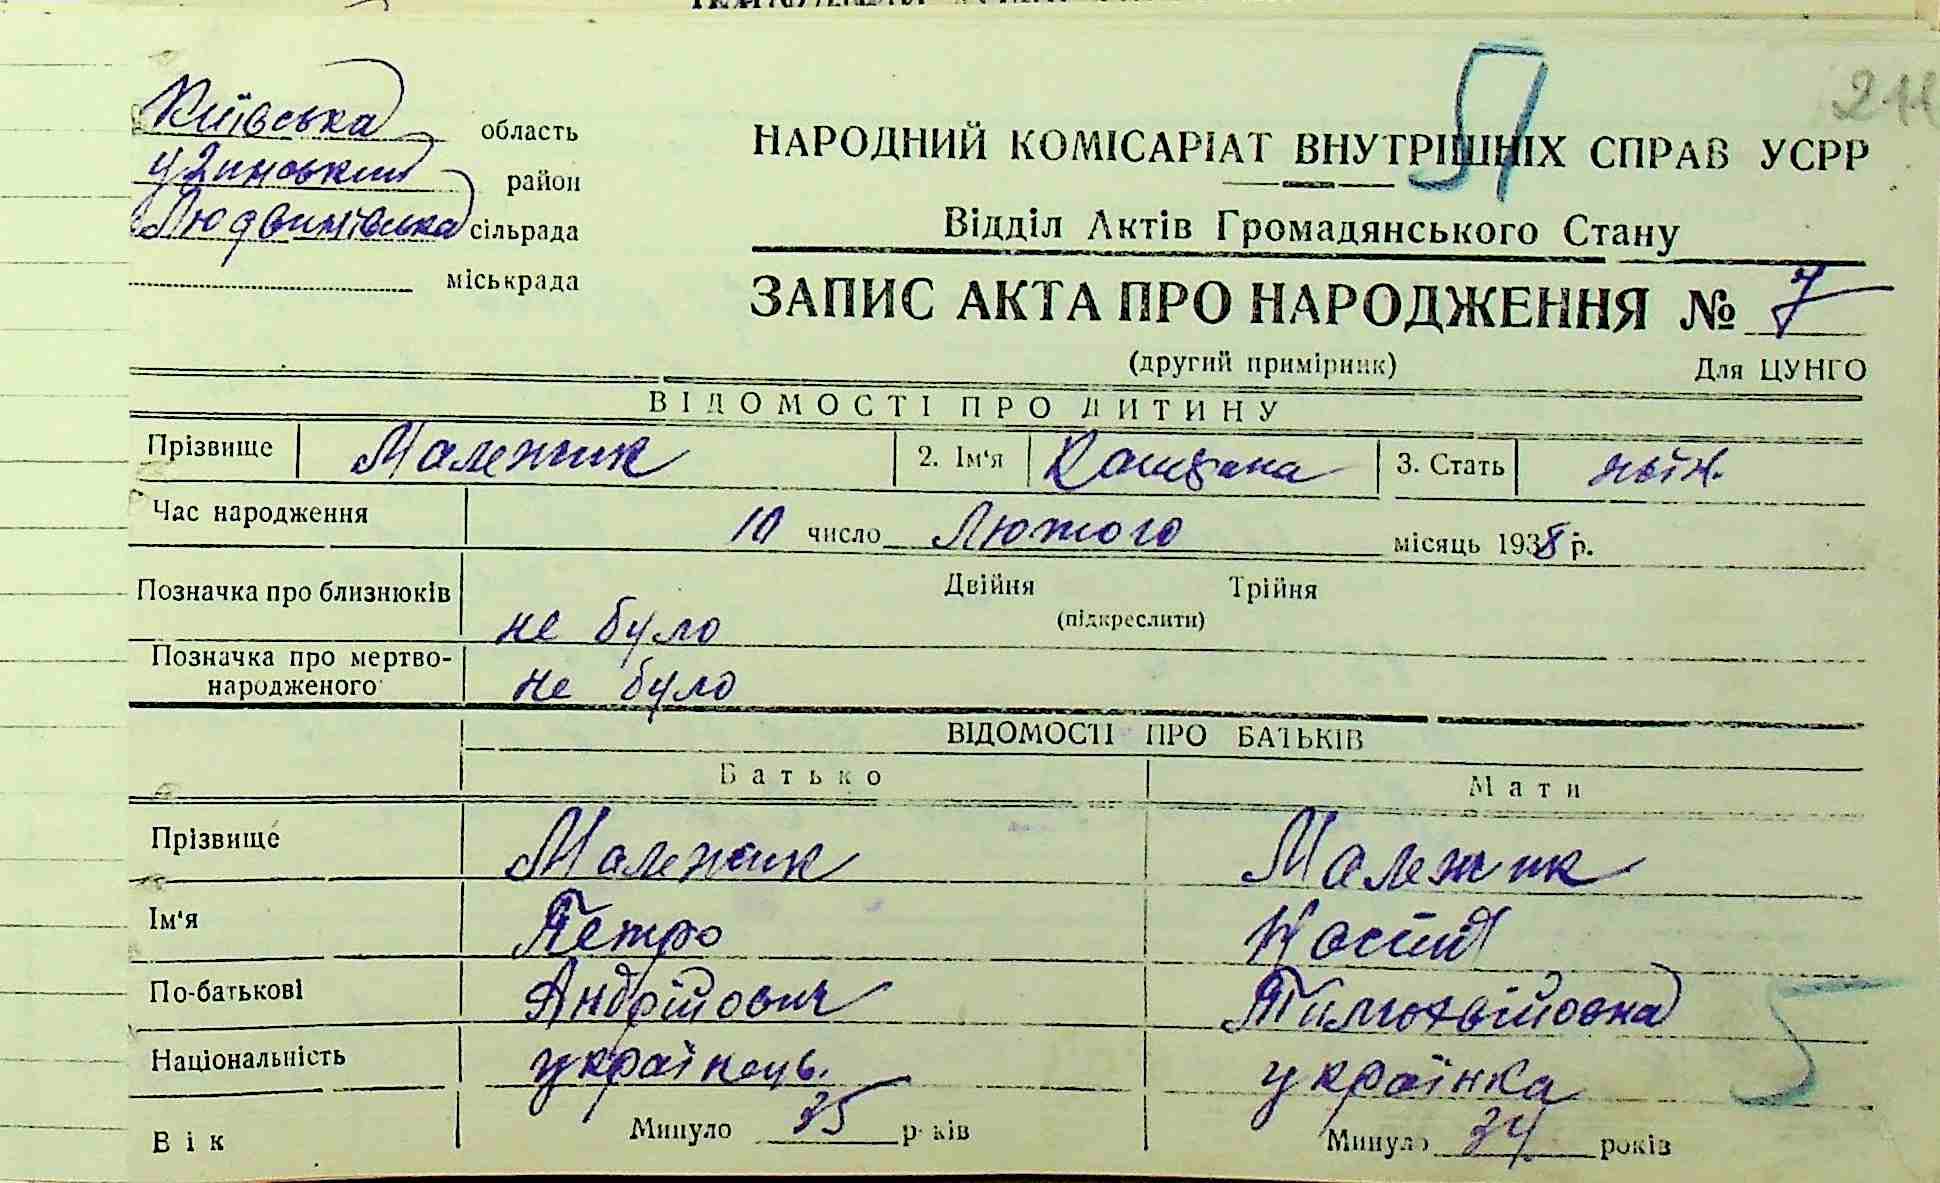 211
Київська область
Узинський район
Людвинівська сільрада
міськрада
51
НАРОДНИЙ КОМІСАРІАТ ВНУТРІШНІХ СПРАВ УСРР
Відділ Актів Громадянського Стану
ЗАПИС АКТА ПРО НАРОДЖЕННЯ № 7
(другий примірник) Для ЦУНГО
ВІДОМОСТІ ПРО ДИТИНУ
Прізвище Малежик 2. Ім'я 3. Стать жін.
Час народження 10 число Лютого місяць 1938 р.
Позначка про близнюків не було Двійня Трійня
(підкреслити)
Позначка про мертво-
народженого не було
ВІДОМОСТІ ПРО БАТЬКІВ
Батько Мати
Прізвище Малежик Малежик
Ім'я Петро
По-батькові Андрійович Тимохвійовна
Національність українець. українка
5
Вік Минуло 35 років Минуло 34 років